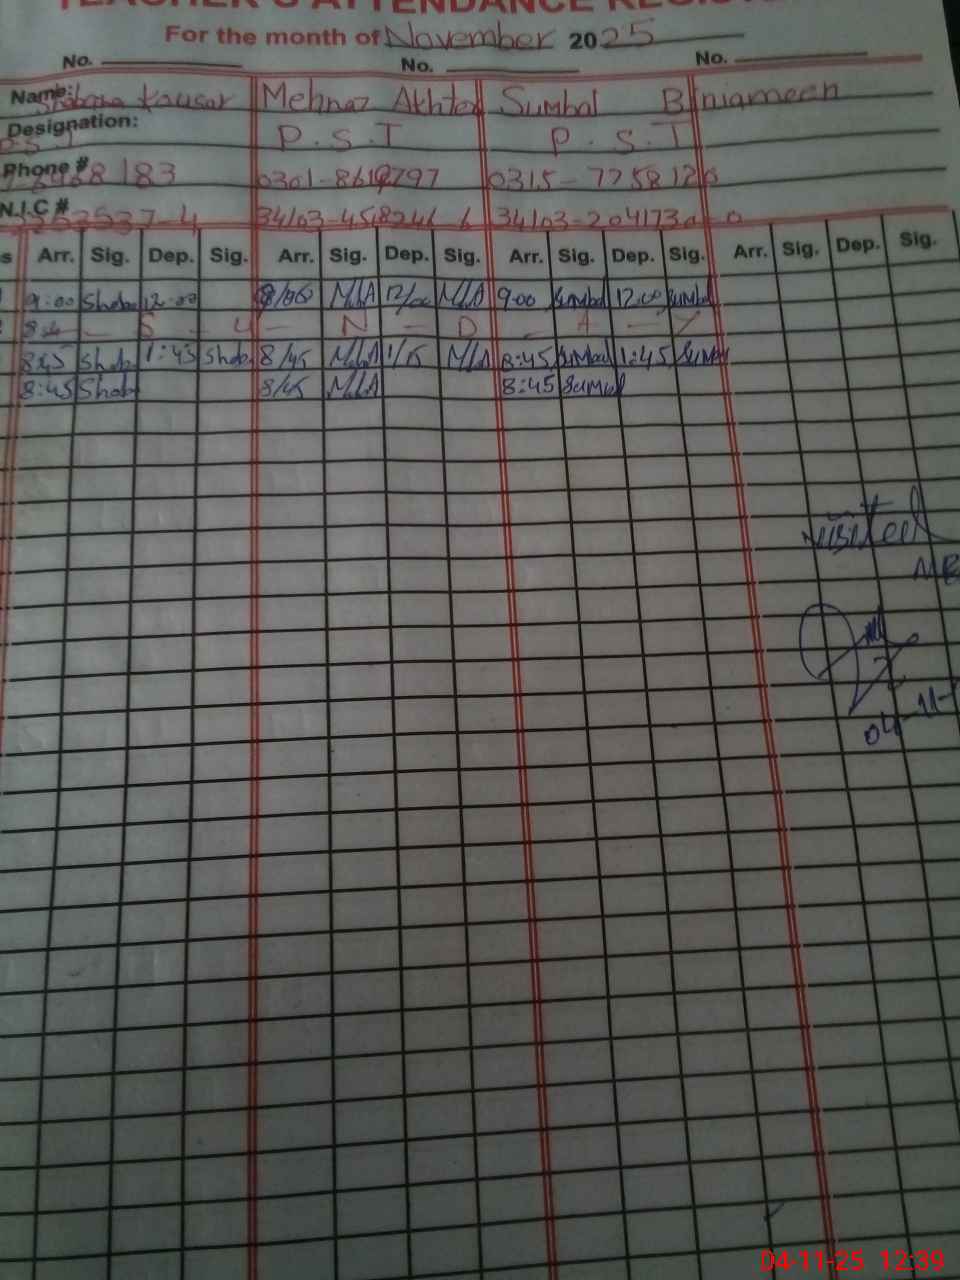 TEACHER'S ATTENDANCE REGISTER
For the month of November 2025
No. No. No.
Name: Shabana Kausar Mehnaz Akhter Sumbal Biniameen
Designation: P.S.T P.S.T
Phone # 183 0301- 797 0315-7758126
N.I.C # 37-4 34103-458 6 34103-2041730-0
s Arr. Sig. Dep. Sig. Arr. Sig. Dep. Sig. Arr. Sig. Dep. Sig. Arr. Sig. Dep. Sig.
9:00 Shab 12:00 MLA 12/00 MLA 9:00 Sumbal 12:00 Sumbal
S - U - N - D - A - Y
8:45 Shab 1:45 Shab 8/45 MLA 1/15 MLA 8:45 Sumbal 1:45 Sumbal
8:45 Shab 8/45 MLA 8:45 Sumbal
visited
04-11-
04-11-25 12:39